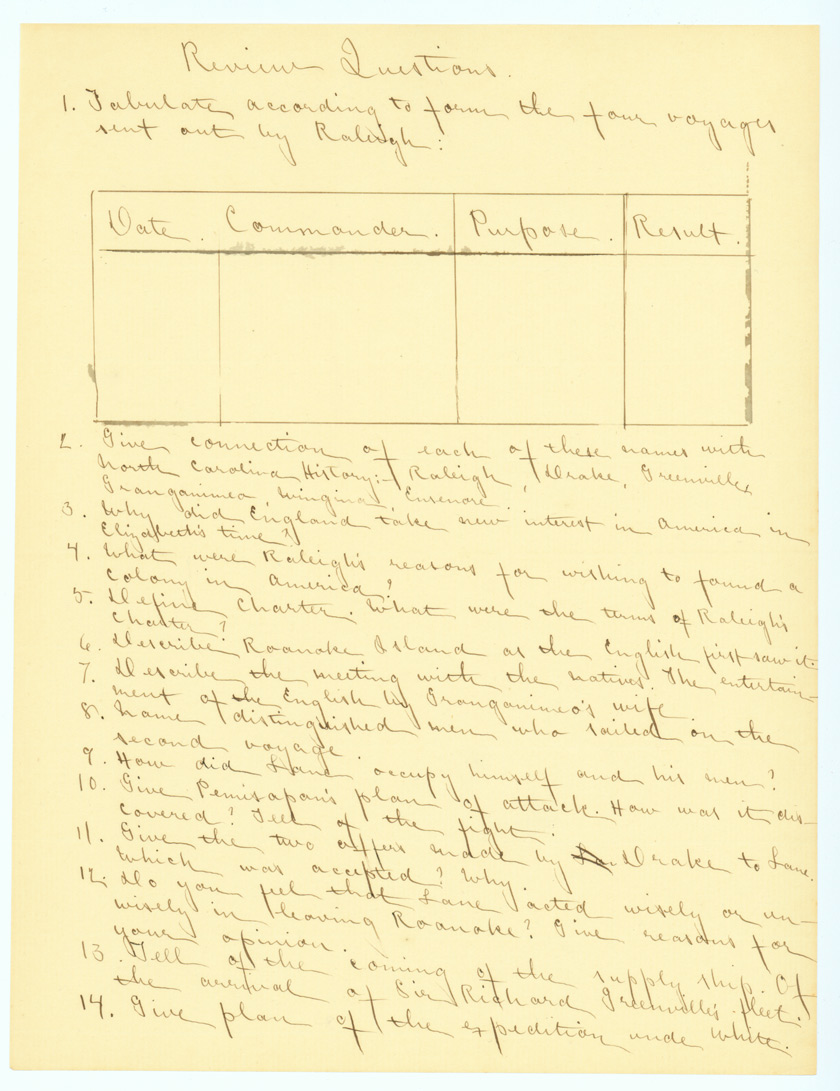 Review Questions.
1. Tabulate according to form the four voyages
sent out by Raleigh:
Date. Commander. Purpose. Result.
2. Give connection of each of these names with
North Carolina History:- Raleigh, Drake, Greenville,
Granganimeo, Wingina, Ensenore.
3. Why did England take new interest in America in
Elizabeth's time?
4. What were Raleigh's reasons for wishing to found a
colony in America?
5. Define Charter. What were the terms of Raleigh's
Charter?
6. Describe Roanoke Island as the English first saw it.
7. Describe the meeting with the natives. The entertain-
ment of the English by Granganimeo's wife.
8. Name distinguished men who sailed on the
second voyage.
9. How did Lane occupy himself and his men?
10. Give Pemisapan's plan of attack. How was it dis-
covered? Tell of the fight.
11. Give the two offers made by Drake to Lane.
Which was accepted? Why.
12. Do you feel that Lane acted wisely or un-
wisely in leaving Roanoke? Give reasons for
your opinion.
13. Tell of the coming of the supply ship. Of
the arrival of Sir Richard Greenville's fleet.
14. Give plan of the expedition under White.